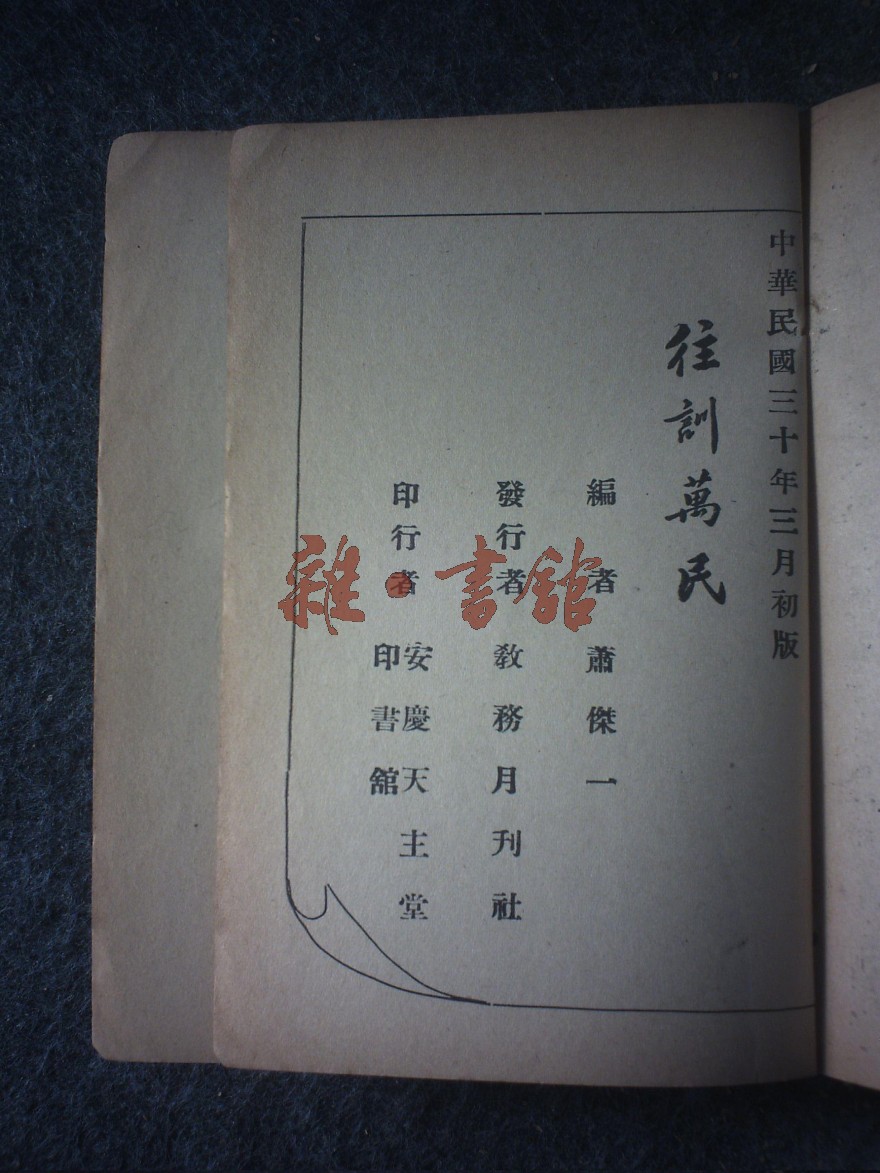 中華民國三十年三月初版
往訓萬民
編者 蕭傑一
發行者 教務月刊社
印行者 安慶天主堂
印書館
雜·書館